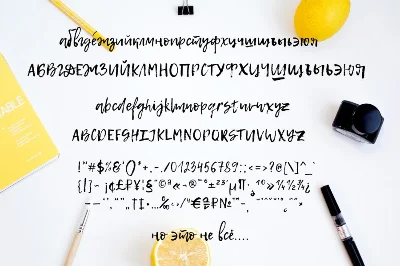 абвгдеёжзийклмнопрстуфхцчшщъыьэюя
АБВГДЕЖЗИЙКЛМНОПРСТУФХЦЧШЩЪЫЬЭЮЯ
abcdefghijklmnopqrstuvwxyz
ABCDEFGHIJKLMNOPQRSTUVWXYZ
!"#$%&'()*+,-./0123456789:;<=>?@[\]^_`
но это не всё....